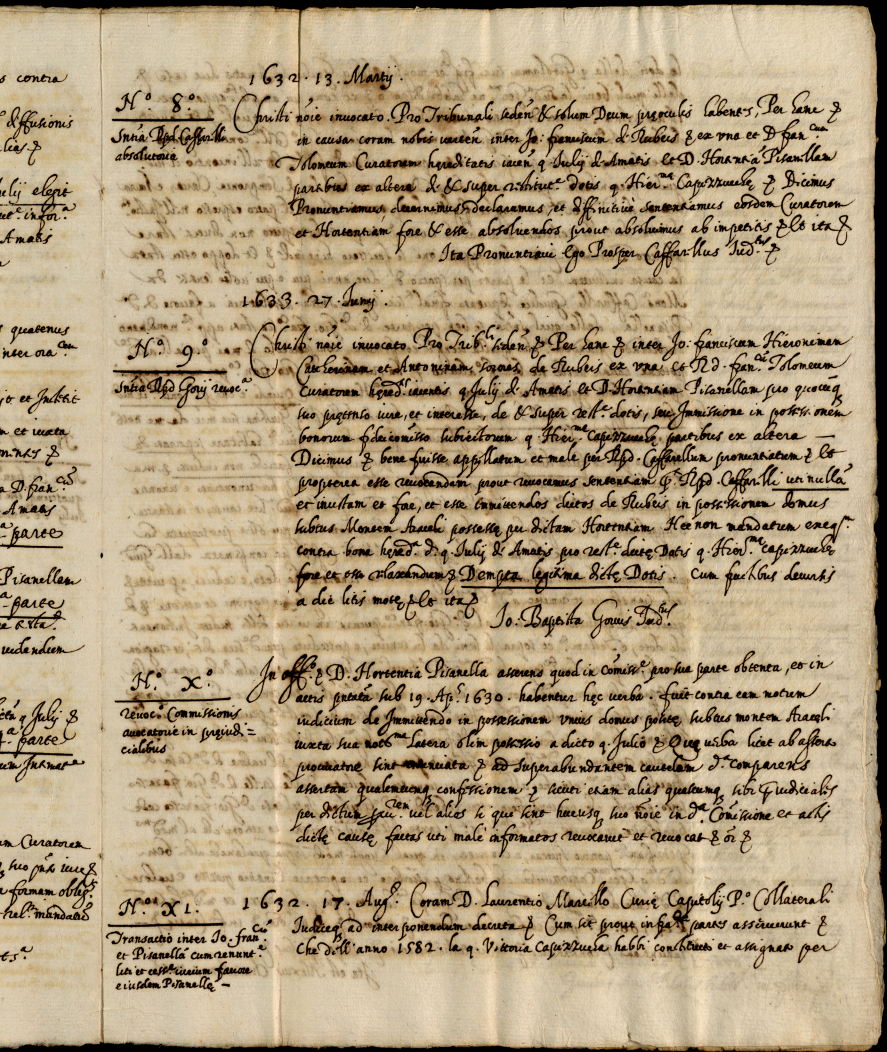 s contra
effusionis
Julij elegit
Amatis
s quatenus
inter ora
et Instit
m et iuxta
a D. fran.
Amatis
parte
Pisanellam
parte
videndum
q. Julij
parte
um Curatorem
suo
a formam oblig.
rel. mandatis
1632. 13. Martij.
N.º 8.º
Sntia Rpd Caffarelli
absolutoria
Christi nõie invocato. Pro Tribunali seden & solum Deum preoculis habentes, Per hanc
in causa coram nobis verten inter Jo: franciscum de Rubeis & ex una et D. fran.cum
Tolomeum Curatorem hęreditatis iacen q. Julij de Amatis et D. Hortentiã Pisanellam
partibus ex altera de & super restitut.e dotis q. Hier.me Capizzucchę & Dicimus
Pronuntiamus, decernimus, declaramus, et diffinitivè sententiamus eosdem Curatorem
et Hortentiam fore & esse absolvendos prout absolvimus ab impetitis & et ita
Ita Pronuntiavi Ego Prosper Caffarellus Iud.
1633. 27. Junij.
N.º 9.º
Sntia Rpd Gorij revoc.a
Christi nõie invocato. Pro Trib.li seden & Per hanc & inter Jo: franciscum Hieroniman
Catherinam et Antoninam sorores de Rubeis ex una et Rd. fran.cum Tolomeum
Curatorem hęred. iacentis q. Julij de Amatis et D. Hortentiam Pisanellam pro quocũq
suo prętenso iure, et interesse, de & super rest.e dotis, seu Immissione in possessionem
bonorum fideicõmisso subiectorum q. Hier.me Capizzucchę partibus ex altera —
Dicimus & bene fuisse appellatum et male per Rpd. Caffarellum pronuntiatum & Et
propterea esse revocandam prout revocamus sententiam Rpd. Caffarelli uti nullã
et iniustam et fore, et esse immittendos dictos de Rubeis in possessionem domus
subtus Montem Araceli possesse per dictam Hortentiam Necnon mandatum
contra bona hęred. d. q. Julij de Amatis pro rest.e dictę Dotis q. Hier.me Capizzucchę
fore et esse relaxandum & Dempta legitima dictę Dotis. Cum fructibus decursis
a die litis motę & Et ita
Jo: Baptista Gorius Iud.
N.º X.º
revoc.o Commissionis
avocatorie in preiudi=
cialibus
In off.o & D. Hortentia Pisanella asserens quod in Cõmiss.e pro sua parte obtenta, et in
actis pntata sub 19. Ap. 1630. habentur hęc verba. fuit contra eam motum
iudicium de Immittendo in possessionem unius domus positę subtus montem Araceli
iuxta sua latera olim possessio a dicto q. Julio & Quę verba licet ab asserto
procuratore sint enunciata & ad superabundantem cautelam d.a comparens
assertam qualemcunq confessionem & sicuti etiam alias quascunq sibi pręiudiciales
per dictum vel alios si que sint hucusq suo nõie in d.a Cõmissione et actis
dictę causę factas uti male informatos revocavit et revocat & oi
N.º XI.
Transactio inter Jo: fran.cum
et Pisanellã cum renunt.e
liti et cess.e iurium favore
eiusdem Pisanellę —
1632. 17. Aug. Coram D. Laurentio Marcello Curię Capitolij P.o Collaterali
Iudiceq ad interponendum decreta & Cum sit prout infra partes asseruerunt
Che dell'anno 1582. la q. Vittoria Capizzucca habbi constituto et assignato per